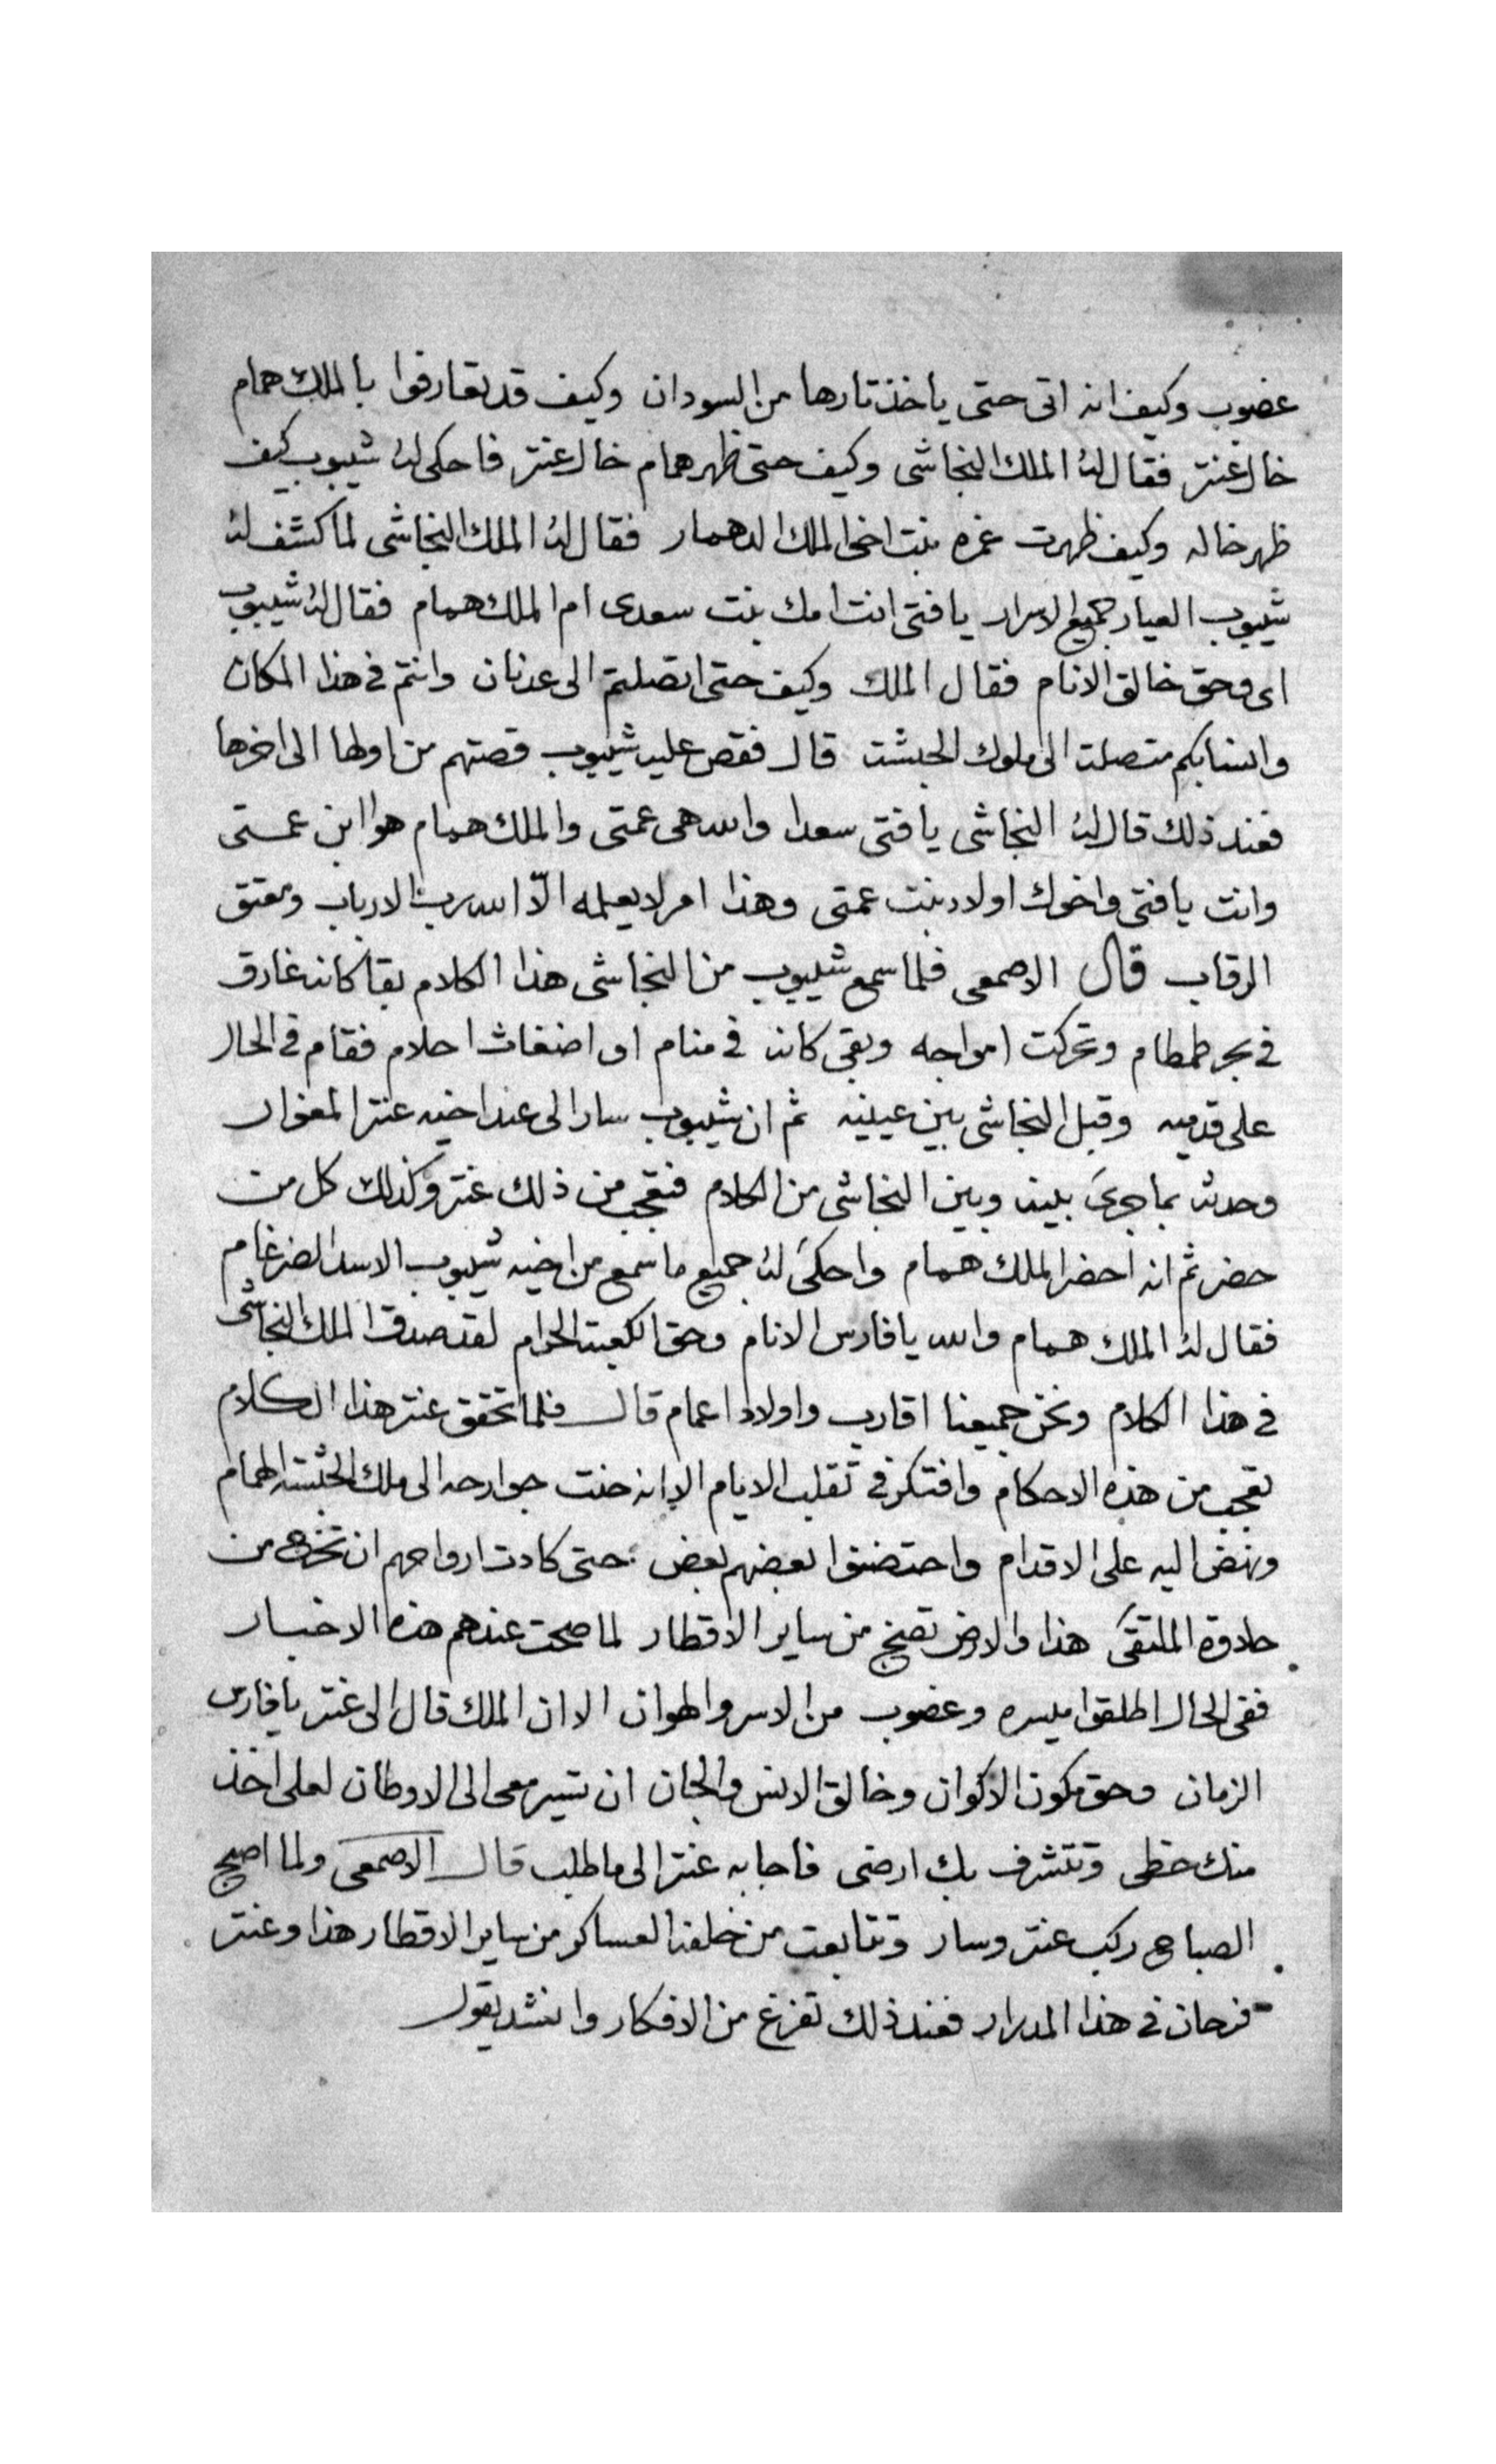 غضوب وكيف انه اتى حتى ياخذ تارها من السودان وكيف قد تعارفوا بالملك همام
خال عنتر فقال له الملك النجاشى وكيف حتى ظهر همام خال عنتر فاحكى له شيبوب كيف
ظهر خاله وكيف ظهرت غمره بنت اخى الملك الدهمار فقال له الملك النجاشى لما كشف له
شيبوب العيار جميع الاسرار يا فتى انت امك بنت سعدى ام الملك همام فقال له شيبوب
اى وحق خالق الانام فقال الملك وكيف حتى اتصلتم الى عدنان وانتم فى هذا المكان
وانسابكم متصلة الى ملوك الحبشة قال فقص عليه شيبوب قصتهم من اولها الى اخرها
فعند ذلك قال له النجاشى يا فتى سعدا والله هى عمتى والملك همام هو ابن عمتى
وانت يا فتى واخوك اولاد بنت عمتى وهذا امر لا يعلمه الّا الله رب الارباب ومعتق
الرقاب قال الاصمعى فلما سمع شيبوب من النجاشى هذا الكلام بقا كانه غارق
فى بحر طمطام وتحركت امواجه وبقى كانه فى منام او اضغاث احلام فقام فى الحال
على قدميه وقبل النجاشى بين عينيه ثم ان شيبوب سار الى عند اخيه عنتر المغوار
وحدثه بما جرىَ بينه وبين النجاشى من الكلام فتعجب من ذلك عنتر وكذلك كل من
حضر ثم انه احضر الملك همام واحكىَ له جميع ما سمع من اخيه شيبوب الاسد الضرغام
فقال له الملك همام والله يا فارس الانام وحق الكعبة الحرام لقد صدق الملك النجاشى
فى هذا الكلام ونحن جميعنا اقارب واولاد اعمام قال فلما تحقق عنتر هذا الكلام
تعجب من هذه الاحكام وافتكر فى تقلب الايام الا انه حنت جوارحه الى ملك الحبشة الهمام
ونهض اليه على الاقدام واحتضنوا بعضهم بعض حتى كادت ارواحهم ان تخرج من
حلاوة الملتقىَ هذا والارض تضج من ساير الاقطار لما صحت عندهم هذه الاخبار
ففى الحال اطلقوا ميسره وغضوب من الاسر والهوان الا ان الملك قال الى عنتر يا فارس
الزمان وحق مكون الاكوان وخالق الانس والجان ان تسير معى الى الاوطان لعلى اخذ
منك حظى وتتشرف بك ارضى فاجابه عنتر الى ما طلب قال الاصمعى ولما اصبح
الصباح ركب عنتر وسار وتتابعت من خلفه العساكر من ساير الاقطار هذا وعنتر
فرحان فى هذا المدرار فعند ذلك تفرغ من الافكار وانشد يقول